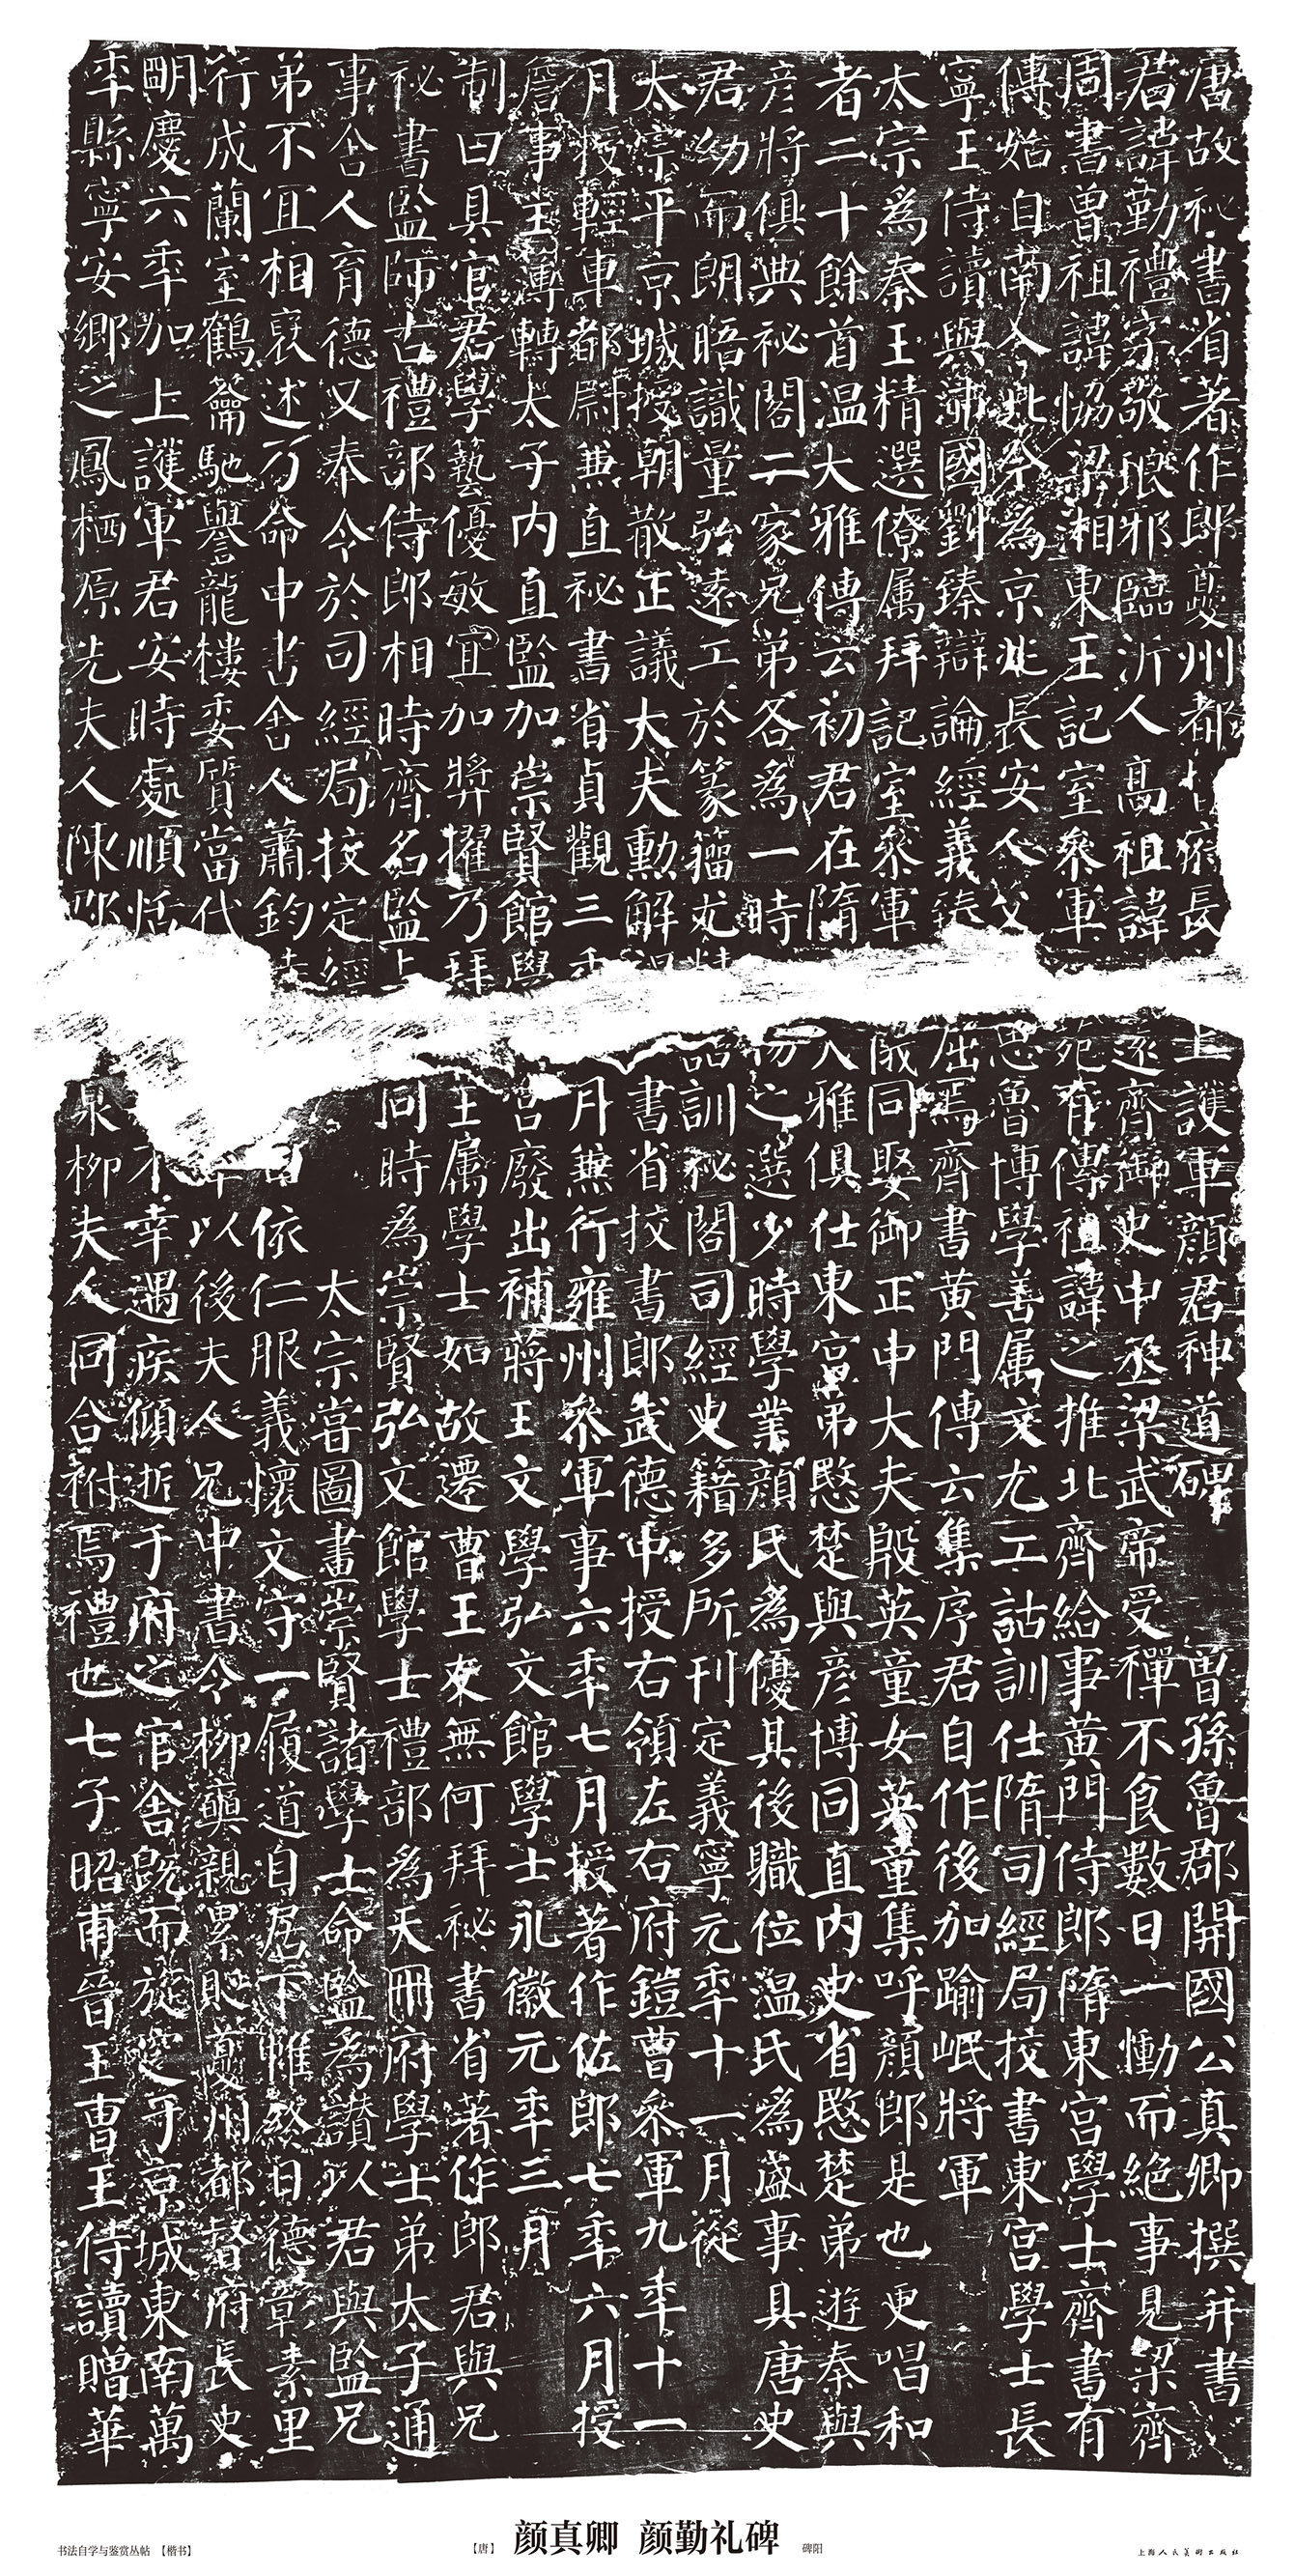 唐故祕書省著作郎夔州都長上護軍顏君神道碑 曾孫魯郡開國公真卿撰并書
君諱勤禮字敬琅邪臨沂人高祖諱遠齊御史中丞梁武帝受禪不食數日一慟而絕事見梁齊
周書曾祖諱協梁湘東王記室參軍苑有傳祖諱之推北齊給事黃門侍郎隋東宮學士齊書有
傳始自南入北今為京兆長安人父思魯博學善屬文尤工詁訓仕隋司經局校書東宮學士長
寧王侍讀與沛國劉臻辯論經義臻屈焉齊書黃門傳云集序君自作後加踰岷將軍
太宗為秦王精選僚属拜記室參軍儀同娶御正中大夫殷英童女英童集呼顏郎是也更唱和
者二十餘首溫大雅傳云初君在隋大雅俱仕東宮弟愍楚與彥博同直內史省愍楚弟遊秦與
彥將俱典祕閣二家兄弟各為一時之選少時學業顏氏為優其後職位溫氏為盛事具唐史
君幼而朗晤識量弘遠工於篆籀尤精詁訓祕閣司經史籍多所刊定義寧元年十一月從
太宗平京城授朝散正議大夫勳解褐書省校書郎武德中授右領左右府鎧曹參軍九年十一
月授輕車都尉兼直祕書省貞觀三年月兼行雍州參軍事六年七月授著作佐郎七年六月授
詹事主簿轉太子內直監加崇賢館學宮廢出補蔣王文學弘文館學士永徽元年三月
制曰具官君學藝優敏宜加獎擢乃拜王属學士如故遷曹王友無何拜祕書省著作郎君與兄
祕書監師古禮部侍郎相時齊名監同時為崇賢弘文館學士禮部為天冊府學士弟太子通
事舍人育德又奉令於司經局校定經太宗嘗圖畫崇賢諸學士命監為讚以君與監兄
弟不宜相褒述乃命中書舍人蕭鈞依仁服義懷文守一履道自居下帷終日德彰素里
行成蘭室鶴籥馳譽龍樓委質當代以後夫人兄中書令柳奭親累貶夔州都督府長史
明慶六年加上護軍君安時處順恬不幸遇疾傾逝于府之官舍既而旋窆于京城東南萬
年縣寧安鄉之鳳栖原先夫人陳郡泉柳夫人同合祔焉禮也七子昭甫晉王曹王侍讀贈華
书法自学与鉴赏丛帖 【楷书】
【唐】 颜真卿 颜勤礼碑 碑阳
上海人民美術出版社